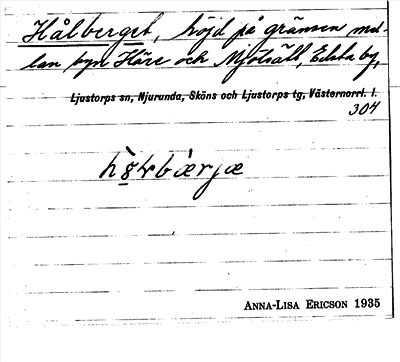 Hålberget, höjd på gränsen mel-
lan byn Häre och Mjölsätt, Edsta by,
Ljustorps sn, Njurunda, Sköns och Ljustorps tg, Västernorrl. l.
304
ANNA-LISA ERICSON 1935